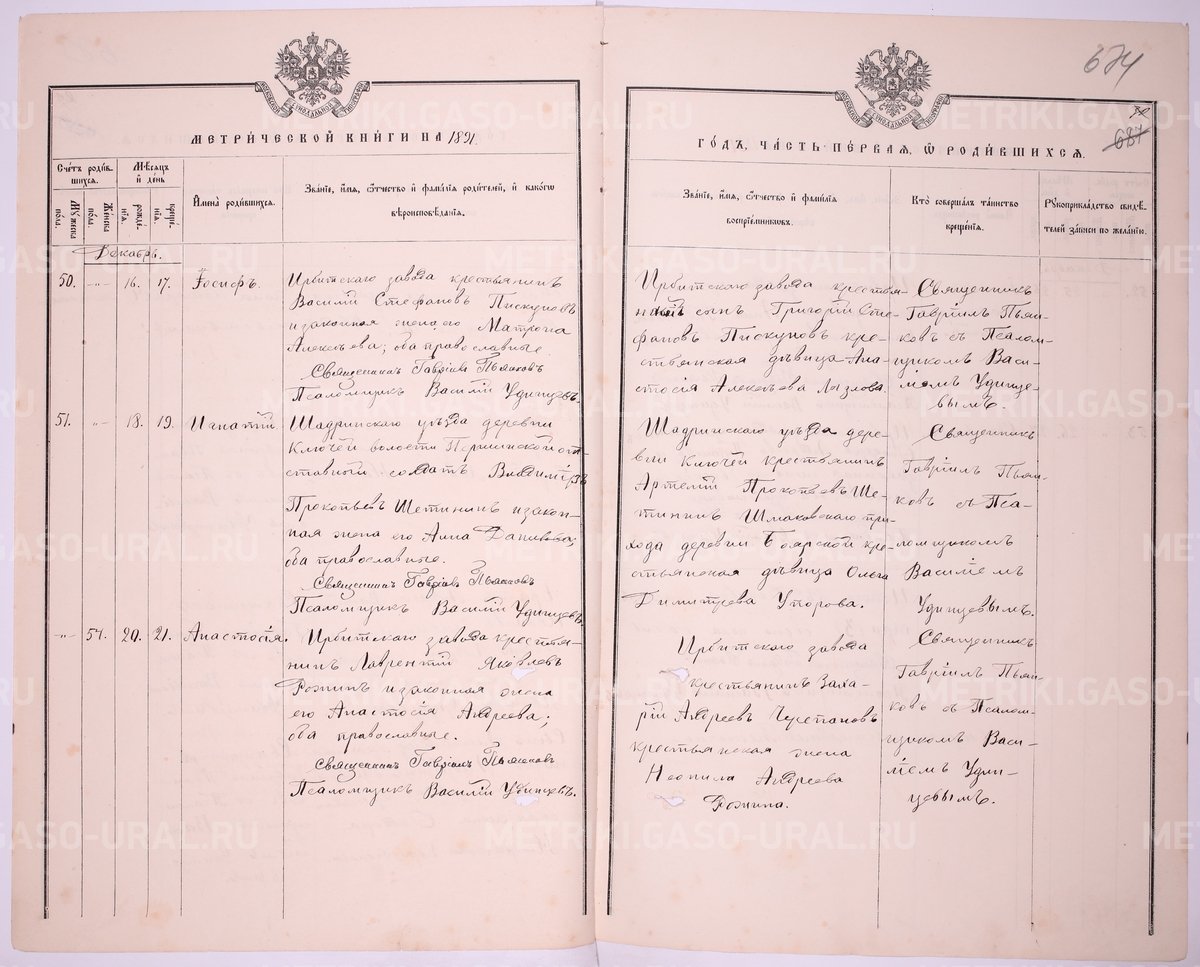 674
687
МЕТРИЧЕСКОЙ КНИГИ НА 1891.
ГОДЪ, ЧАСТЬ ПЕРВАЯ, Ѡ РОДИВШИХСЯ.
Счетъ родив-
шихся.
Мѣсяцъ
и день
Мужеска
пола.
Женска
пола.
рожде-
нїя.
креще-
нїя.
Имена родившихся.
Званїе, имя, ѿчество и фамилїя родителей, и какогѡ
вѣроисповѣданїя.
Званїе, имя, ѿчество и фамилїя
воспрїемниковъ.
Кто совершалъ таинство
крещенїя.
Рукоприкладство свидѣ-
телей записи по желанїю.
Декабрь.
50. -"- 16. 17. Іосифъ.
Ирбитскаго завода крестьянинъ
Василій Стефановъ Пискуновъ
и законная жена его Матрона
Алексѣева; оба православные
Священникъ Гавріилъ Пьянковъ
Псаломщикъ Василій Удинцевъ.
Ирбитскаго завода крестьян-
сынъ Григорій Сте-
фановъ Пискуновъ кре-
стьянская дѣвица Ана-
стосія Алексѣева
Священникъ
Гавріилъ Пьян-
ковъ съ Псалом-
щикомъ Васи-
ліемъ Удинце-
вымъ.
51. -"- 18. 19. Игнатій.
Шадринскаго уѣзда деревни
Ключей волости Першинской от-
ставной солдатъ Владиміръ
Прокопьевъ Щетининъ и закон-
ная жена его Анна Данилова;
оба православные.
Священникъ Гавріилъ Пьянковъ
Псаломщикъ Василій Удинцевъ.
Шадринскаго уѣзда дере-
вни Ключей крестьянинъ
Артемій Прокопьевъ Ще-
тининъ Шмаковскаго при-
хода деревни Боярской кре-
стьянская дѣвица Ольга
Димитріева Упорова.
Священникъ
Гавріилъ Пьян-
ковъ съ Пса-
ломщикомъ
Василіемъ
Удинцевымъ.
-"- 54. 20. 21. Анастосія.
Ирбитскаго завода крестья-
нинъ Лаврентій Яковлевъ
Рожинъ и законная жена
его Анастосія Андреева;
оба православные.
Священникъ Гавріилъ Пьянковъ
Псаломщикъ Василій Удинцевъ.
Ирбитскаго завода
крестьянинъ Заха-
рій Андреевъ Черепановъ
крестьянская жена
Неонила Андреева
Рожина.
Священникъ
Гавріилъ Пьян-
ковъ съ Псалом-
щикомъ Васи-
ліемъ Удин-
цевымъ.
METRIKI.GASO-URAL.RU